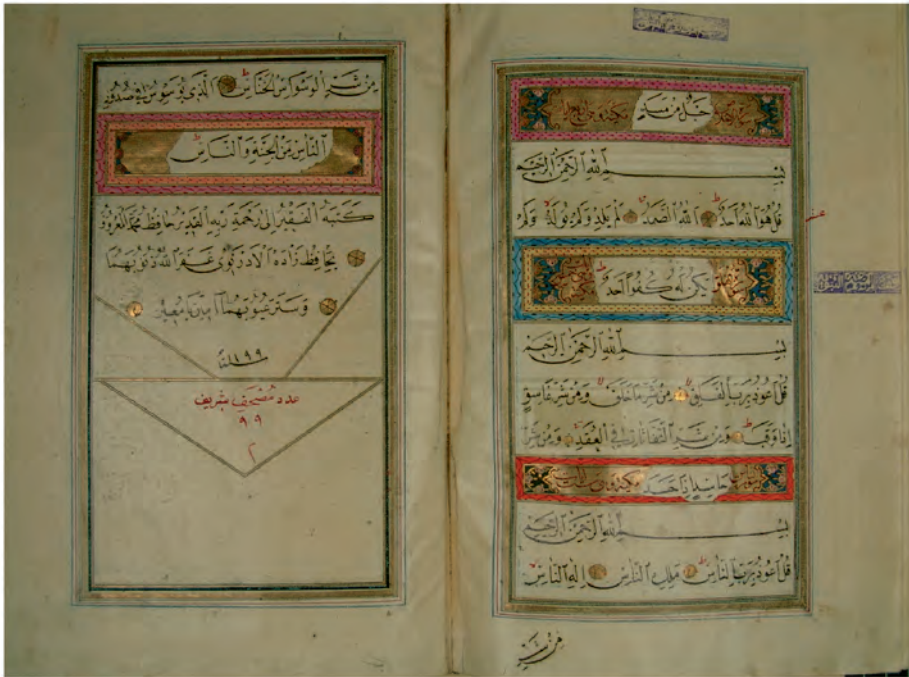 حَبْلٌ مِنْ مَسَدٍ
بِسْمِ اللهِ الرَّحْمٰنِ الرَّحِيمِ
قُلْ هُوَ اللهُ اَحَدٌ اَللهُ الصَّمَدُ لَمْ يَلِدْ وَلَمْ يُولَدْ وَلَمْ
يَكُنْ لَهُ كُفُوًا اَحَدٌ
بِسْمِ اللهِ الرَّحْمٰنِ الرَّحِيمِ
قُلْ اَعُوذُ بِرَبِّ الْفَلَقِ مِنْ شَرِّ مَا خَلَقَ وَمِنْ شَرِّ غَاسِقٍ
اِذَا وَقَبَ وَمِنْ شَرِّ النَّفَّاثَاتِ فِي الْعُقَدِ وَمِنْ شَرِّ
حَاسِدٍ اِذَا حَسَدَ
بِسْمِ اللهِ الرَّحْمٰنِ الرَّحِيمِ
قُلْ اَعُوذُ بِرَبِّ النَّاسِ مَلِكِ النَّاسِ اِلٰهِ النَّاسِ
مِنْ شَرِّ
مِنْ شَرِّ الْوَسْوَاسِ الْخَنَّاسِ اَلَّذِى يُوَسْوِسُ فِى صُدُورِ
النَّاسِ مِنَ الْجِنَّةِ وَالنَّاسِ
كتبه الفقير الى رحمة ربه القدير حافظ محمد المعروف
بحافظ زاده الادرنوى غفر الله ذنوبهما
وستر عيوبهما آمين يا معين
سنة ١١٩٩
عدد مصحف شريف
٩٩
٢